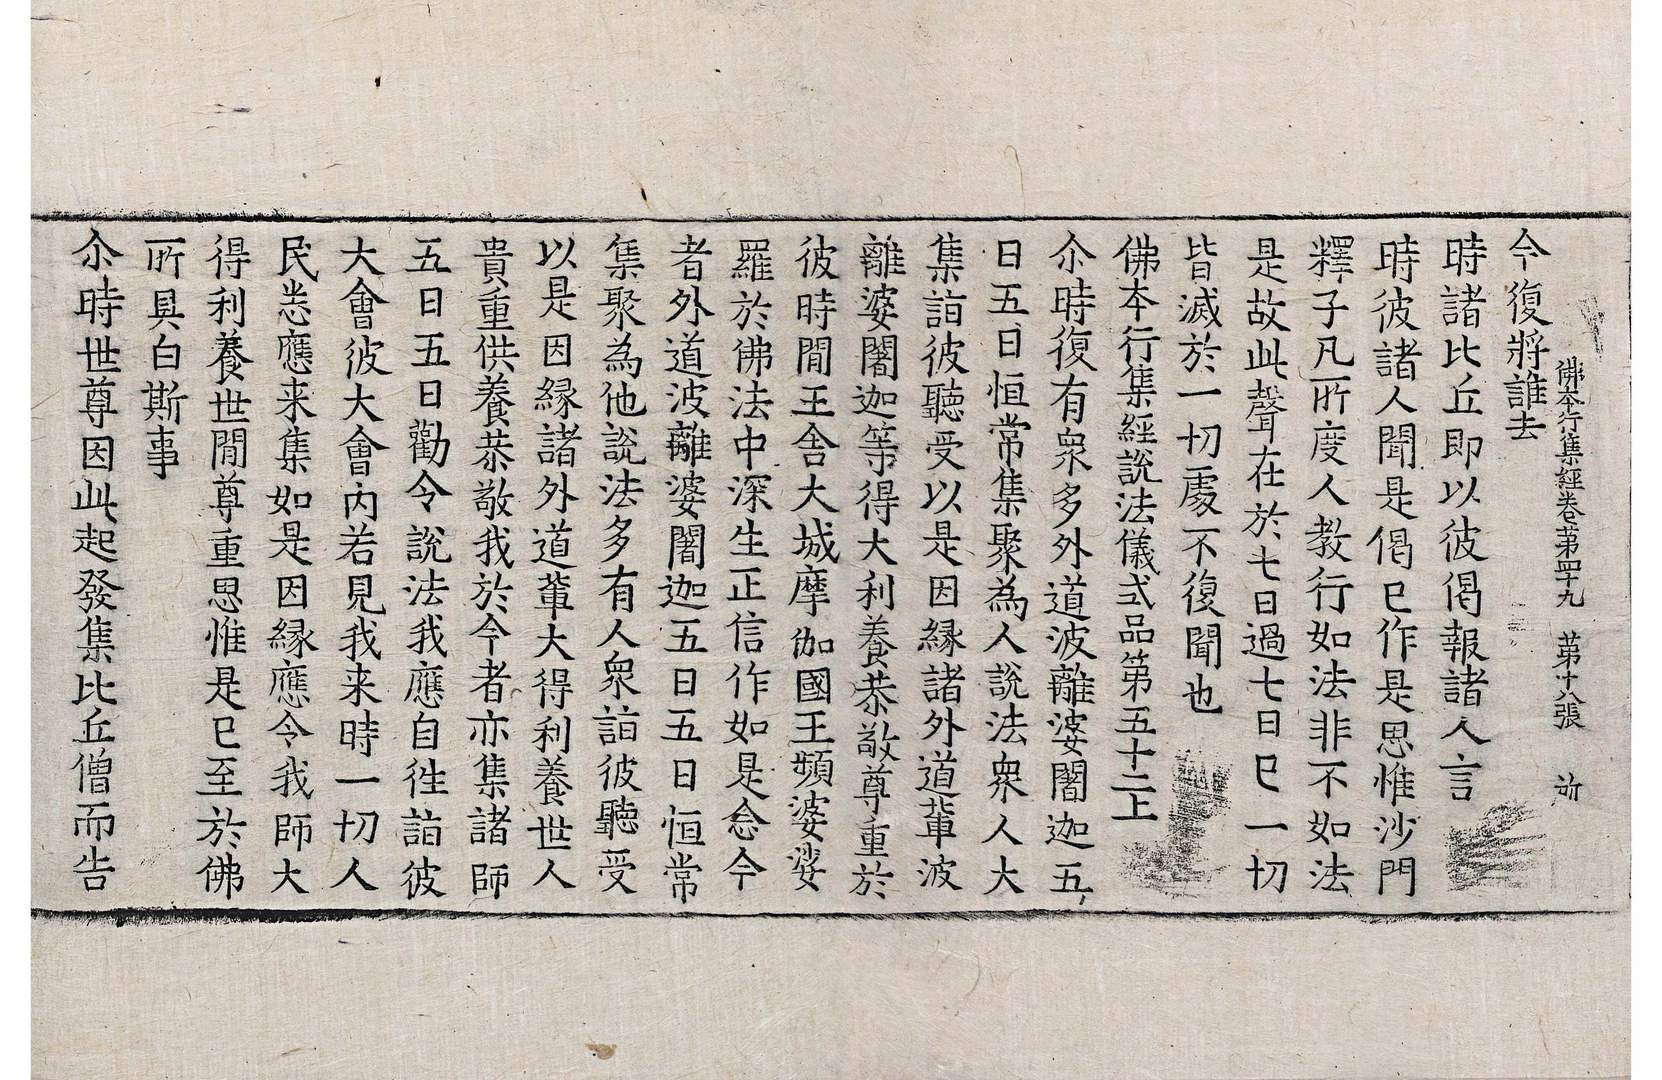 佛本行集經卷第四十九 第十八張
今復將誰去
時諸比丘即以彼偈報諸人言
時彼諸人聞是偈已作是思惟沙門
釋子凡所度人教行如法非不如法
是故此聲在於七日過七日已一切
皆滅於一切處不復聞也
佛本行集經說法儀式品第五十二上
尒時復有衆多外道波離婆闍迦五
日五日恒常集聚為人說法衆人大
集詣彼聽受以是因縁諸外道輩波
離婆闍迦等得大利養恭敬尊重於
彼時間王舍大城摩伽國王頻婆娑
羅於佛法中深生正信作如是念今
者外道波離婆闍迦五日五日恒常
集聚為他說法多有人衆詣彼聽受
以是因縁諸外道輩大得利養世人
貴重供養恭敬我於今者亦集諸師
五日五日勸令說法我應自徃詣彼
大會彼大會內若見我来時一切人
民悉應来集如是因縁應令我師大
得利養世間尊重思惟是已至於佛
所具白斯事
尒時世尊因此起發集比丘僧而告